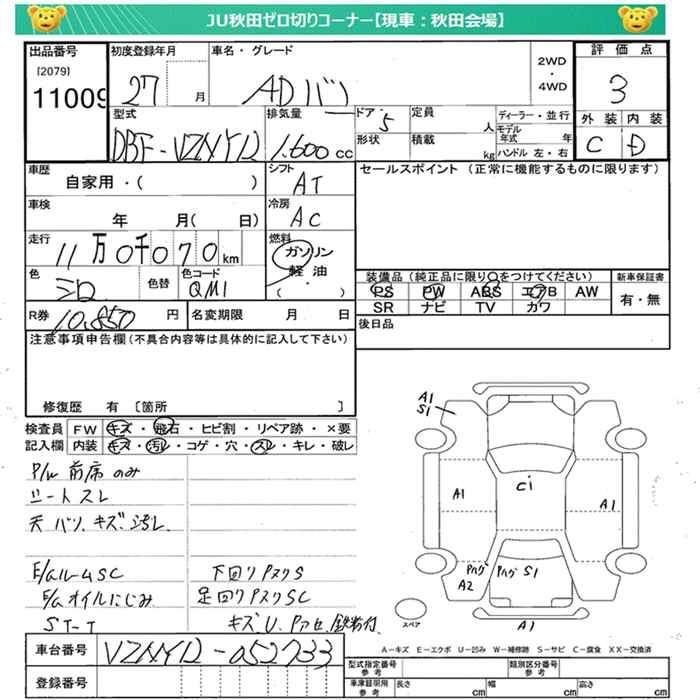 JU秋田ゼロ切りコーナー【現車：秋田会場】
出品番号
(2079)
11009
初度登録年月
27 月
車名・グレード
ADバン
2WD
・
4WD
評価点
3
外装 内装
C D
型式
DBF-VZNY12
排気量
1.600 cc
ドア・形状
5
定員 人
積載 kg
ディーラー・並行
モデル年式 年
ハンドル 左・右
車歴
自家用・( )
シフト
AT
セールスポイント (正常に機能するものに限ります)
車検
年 月( 日)
冷房
AC
走行
11万0千070km
燃料
ガソリン
軽油
( )
色
シロ
色替
色コード
QM1
装備品 (純正品に限り○をつけてください)
PS PW ABS エアB AW
SR ナビ TV カワ
新車保証書
有・無
R券
10,850 円
名変期限 月 日
後日品
注意事項申告欄(不具合内容等は具体的に記入して下さい)
修復歴 有 [箇所 ]
検査員記入欄
FW キズ・飛石・ヒビ割・リペア跡・×要
内装 キズ・汚レ・コゲ・穴・スレ・キレ・破レ
P/W 前席のみ
シートスレ
天バリ、キズ、汚レ
E/GルームSC
E/Gオイルにじみ
ST-T
下回りPスクS
足回りPスクSC
キズ、U、Pアセ、鉄粉付
A1
S1
A1
C1
A1
Pハゲ
A2
Pハゲ S1
A1
スペア
A－キズ E－エクボ U－凹み W－補修跡 S－サビ C－腐食 XX－交換済
車台番号
VZNY12-052733
登録番号
型式指定番号
参考
類別区分番号
参考
車庫証明用
参考
長さ cm
幅 cm
高さ cm